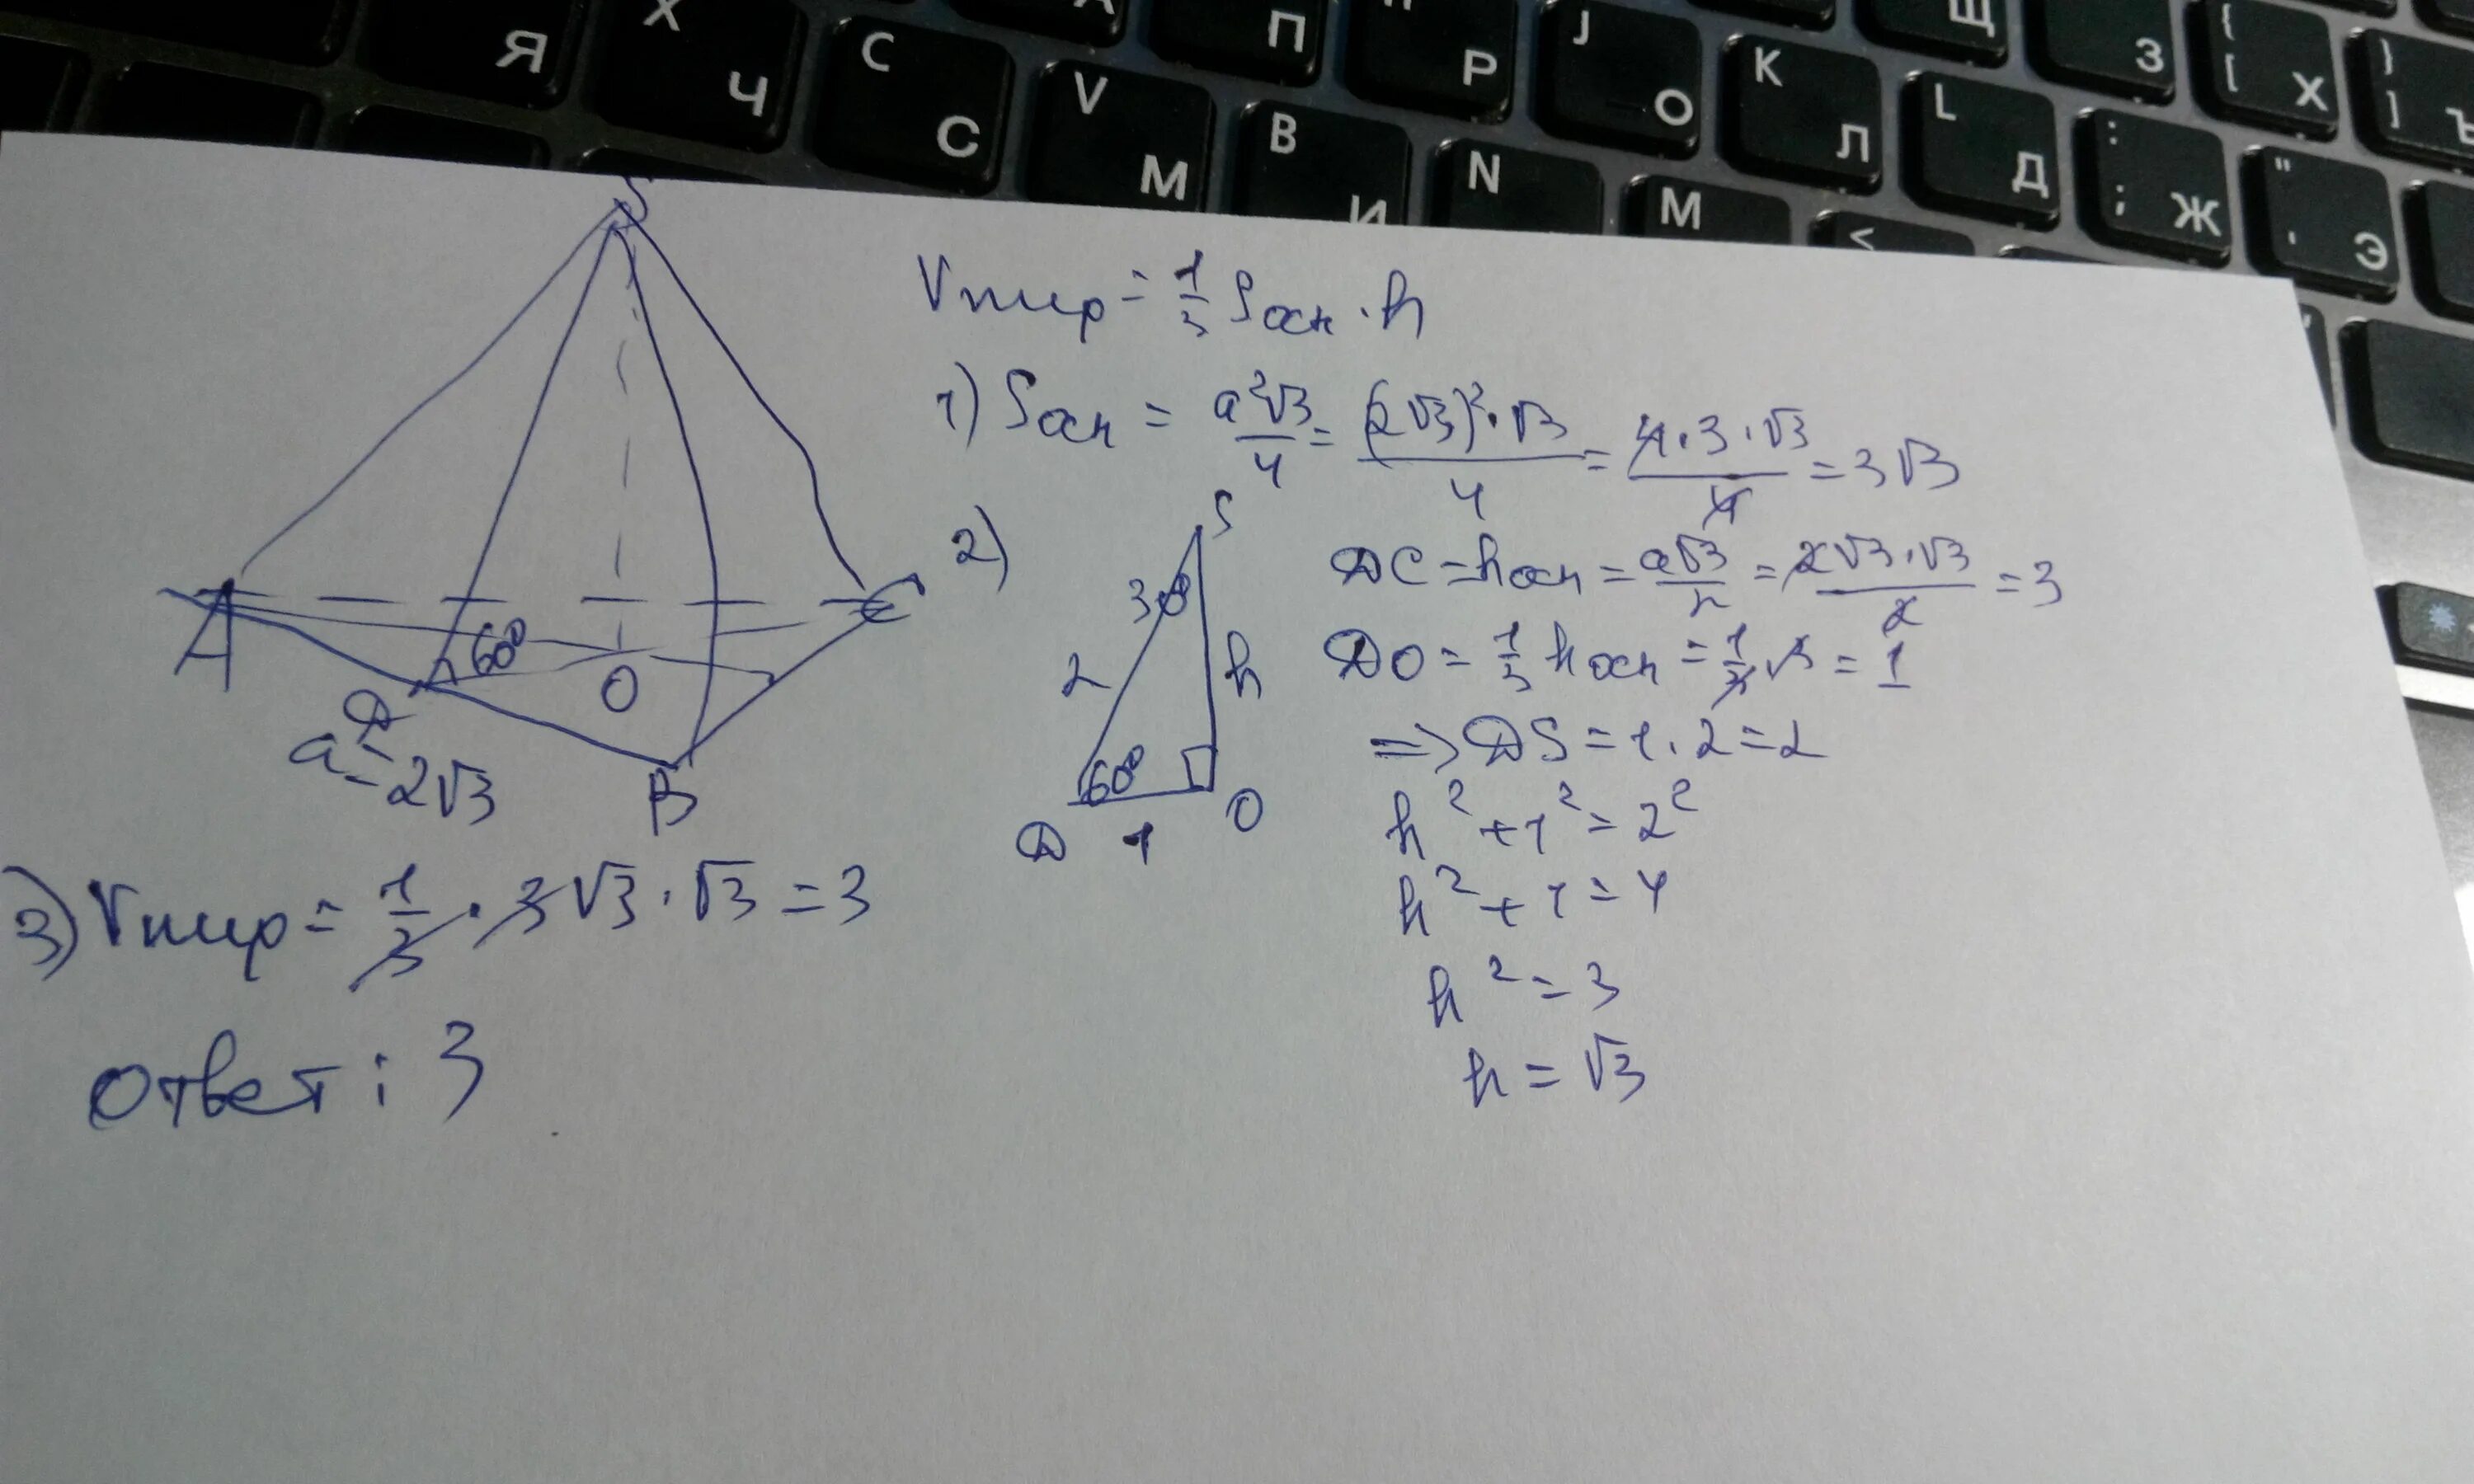 Я
X Ч
C С
V М
П
B И
Р
N
J О
M
K Л
<
L Д
Щ
З
: ; Ж
{ [ Х
" ' Э
} ] Ъ
S
60°
A
D
O
C
B
a = 2√3
Vпир = 1/3 Sосн · h
1) Sосн = a²√3/4 = (2√3)²·√3/4 = 4·3·√3/4 = 3√3
2)
S
30°
2
h
60°
D 1 O
DC = hосн = a√3/2 = 2√3·√3/2 = 3
DO = 1/3 hосн = 1/3·3 = 1
=> DS = 1·2 = 2
h² + 1² = 2²
h² + 1 = 4
h² = 3
h = √3
3) Vпир = 1/3 · 3√3 · √3 = 3
Ответ: 3